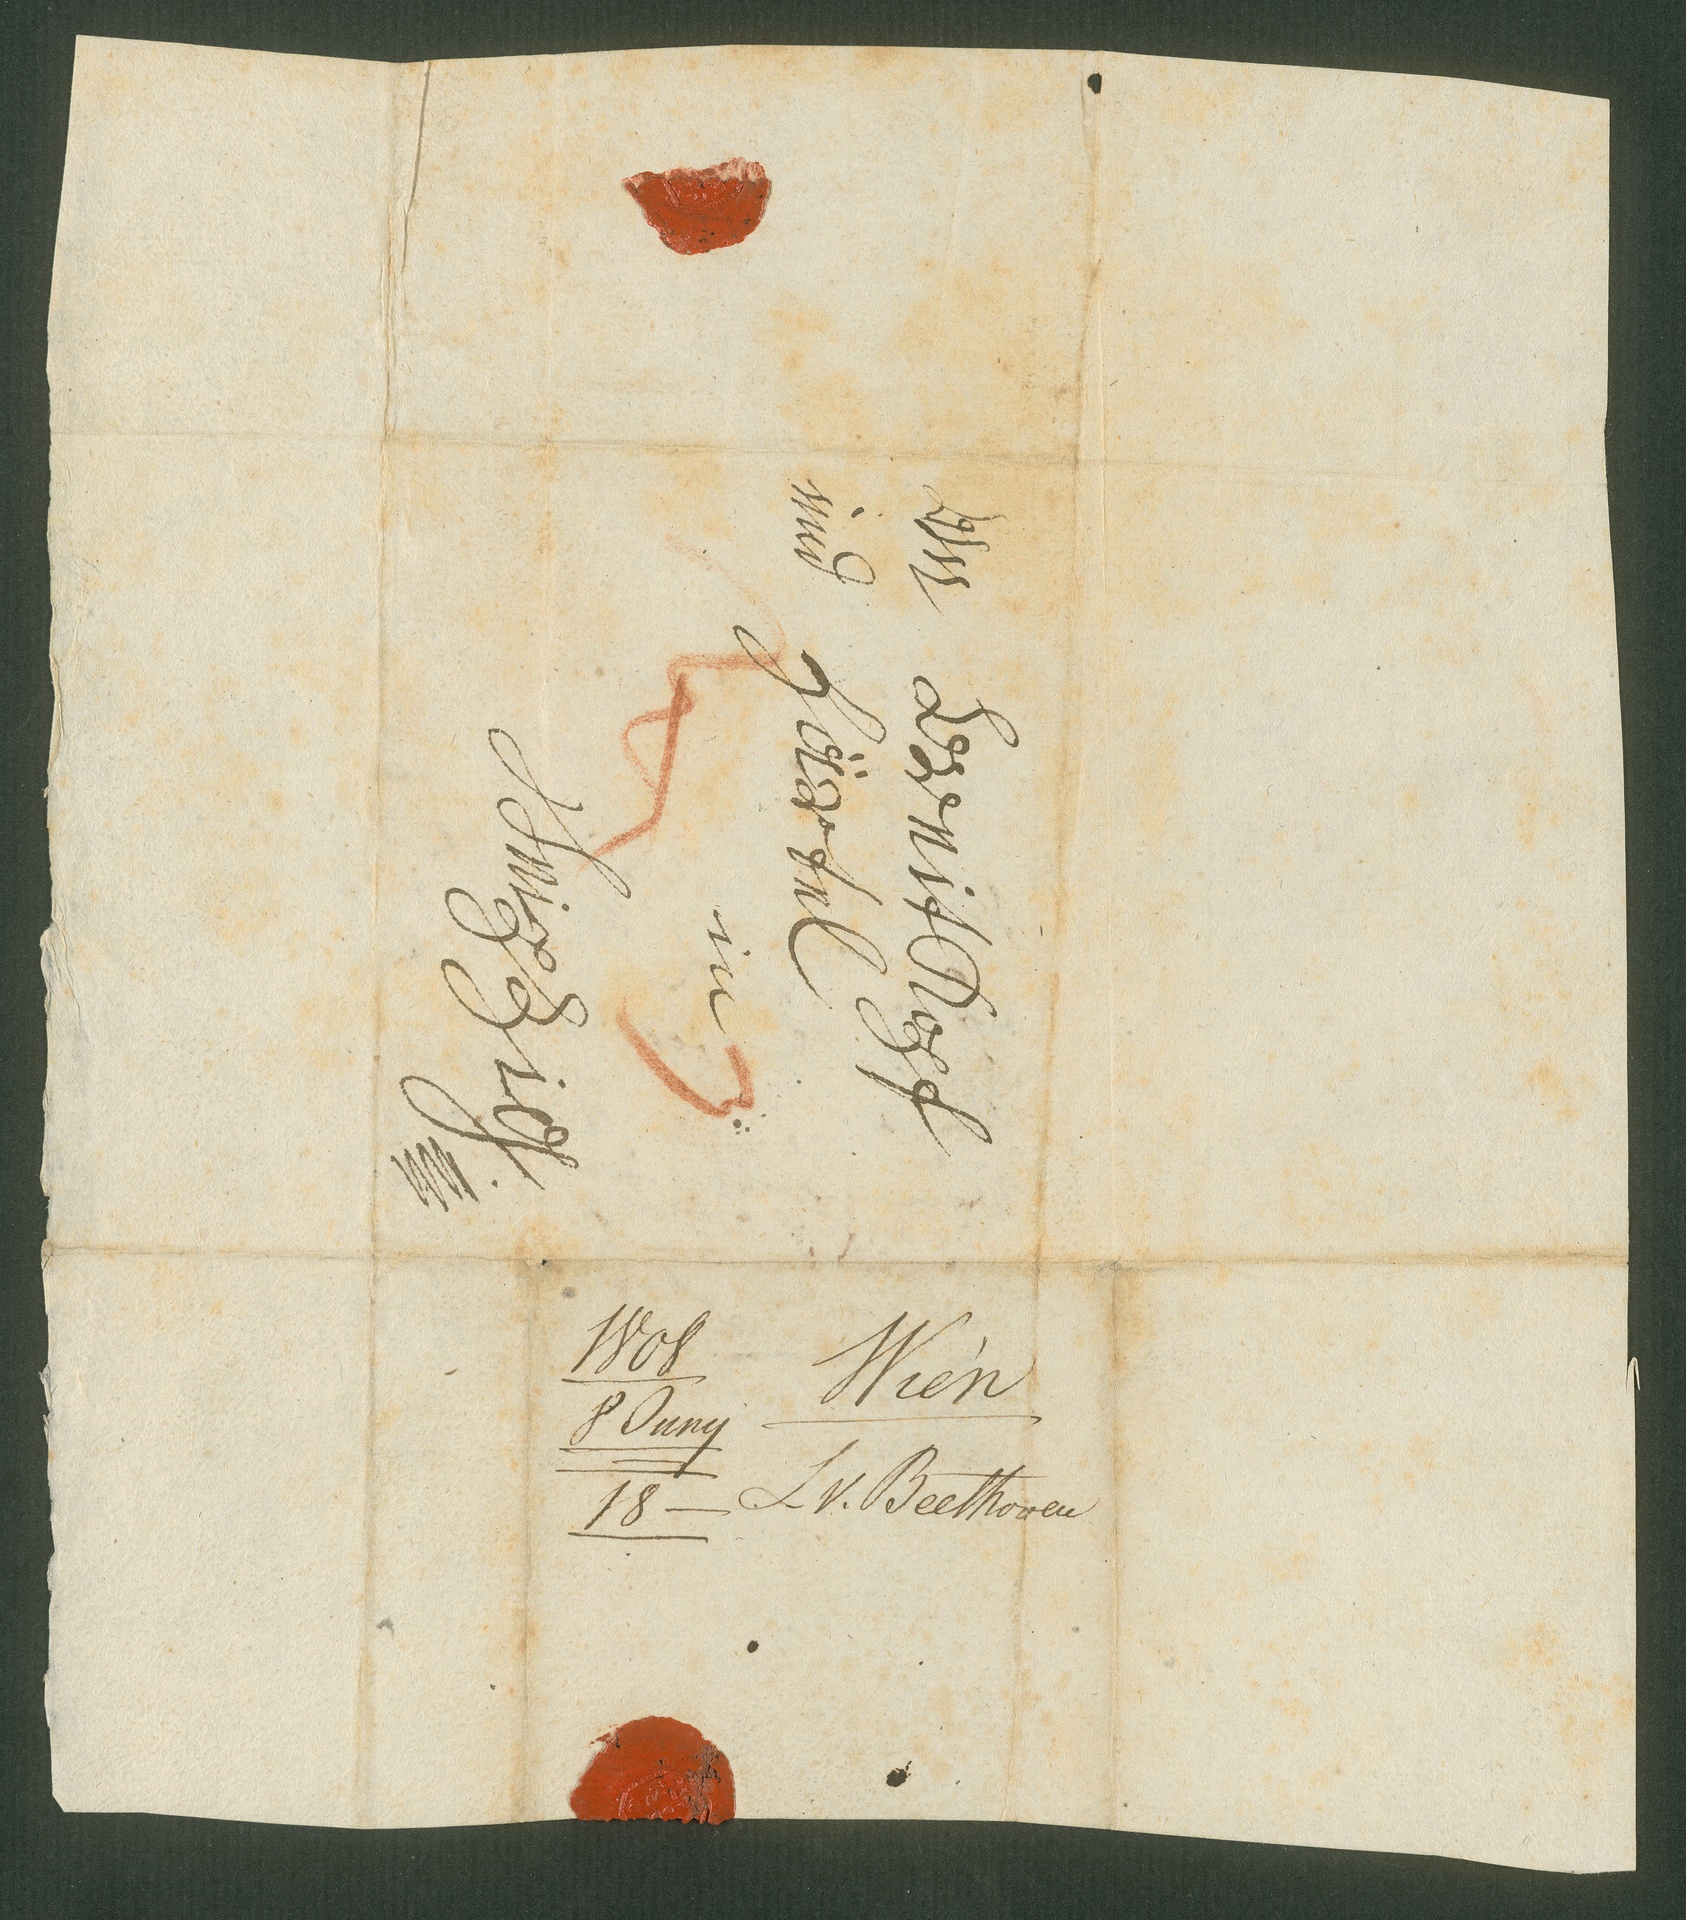 An Breitkopf
und Härtel
in
Leipzig
1808
8 Juny
18 —
Wien
L v. Beethoven